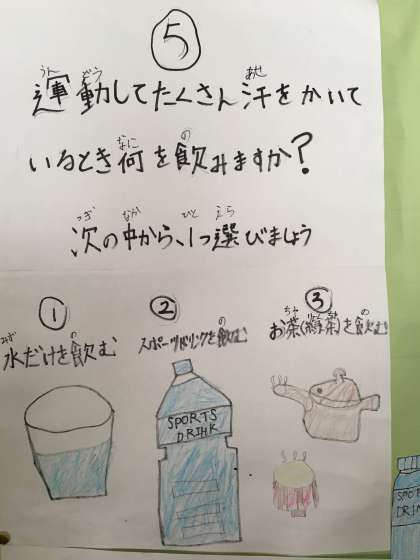 ⑤
運動してたくさん汗をかいて
いるとき何を飲みますか?
次の中から、1つ選びましょう
① ② ③
水だけを飲む スポーツドリンクを飲む お茶(緑茶)を飲む
SPORTS
DRINK
SPO
DRIN